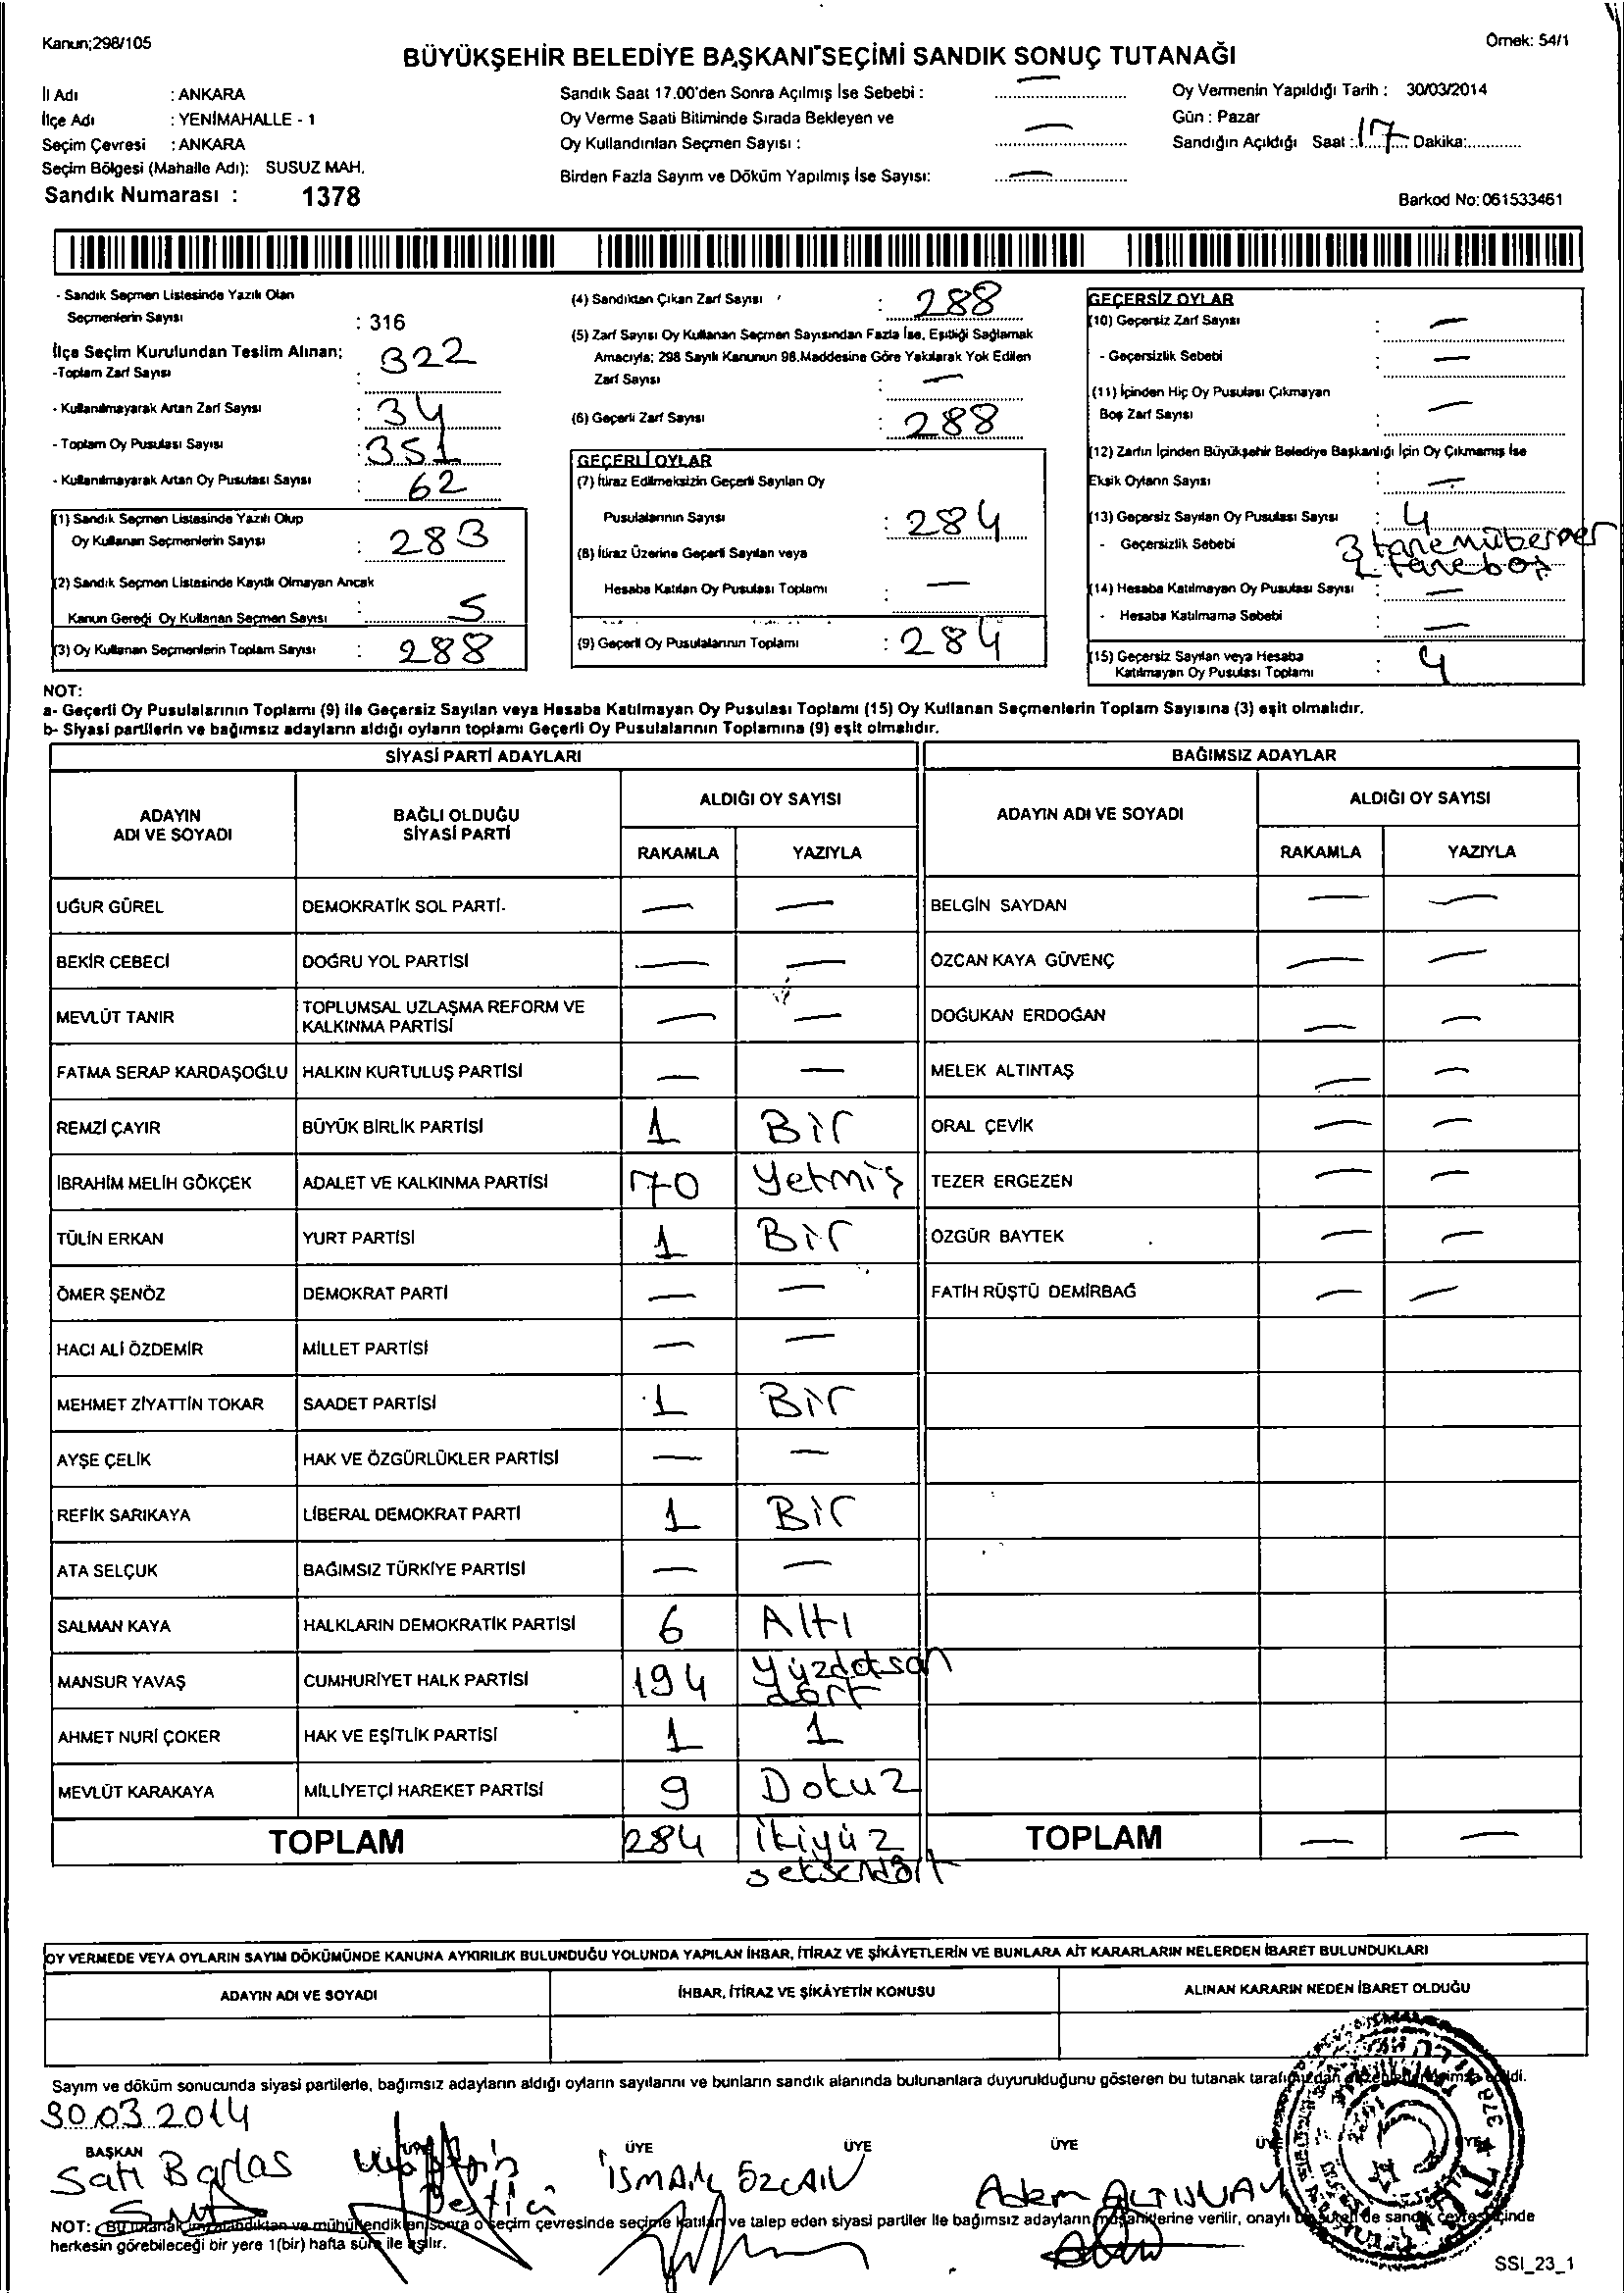 Kanun;298/105
Örnek: 54/1
BÜYÜKŞEHİR BELEDİYE BAŞKANI SEÇİMİ SANDIK SONUÇ TUTANAĞI
İl Adı : ANKARA
İlçe Adı : YENİMAHALLE - 1
Seçim Çevresi : ANKARA
Seçim Bölgesi (Mahalle Adı): SUSUZ MAH.
Sandık Numarası : 1378
Sandık Saat 17.00'den Sonra Açılmış İse Sebebi : —
Oy Verme Saati Bitiminde Sırada Bekleyen ve
Oy Kullandırılan Seçmen Sayısı : —
Birden Fazla Sayım ve Döküm Yapılmış İse Sayısı: —
Oy Vermenin Yapıldığı Tarih : 30/03/2014
Gün : Pazar
Sandığın Açıldığı Saat : 17 Dakika:
Barkod No: 061533461
- Sandık Seçmen Listesinde Yazılı Olan
Seçmenlerin Sayısı : 316
İlçe Seçim Kurulundan Teslim Alınan;
-Toplam Zarf Sayısı : 322
- Kullanılmayarak Artan Zarf Sayısı : 34
- Toplam Oy Pusulası Sayısı : 351
- Kullanılmayarak Artan Oy Pusulası Sayısı : 62
(1) Sandık Seçmen Listesinde Yazılı Olup
Oy Kullanan Seçmenlerin Sayısı : 283
(2) Sandık Seçmen Listesinde Kayıtlı Olmayan Ancak
Kanun Gereği Oy Kullanan Seçmen Sayısı : 5
(3) Oy Kullanan Seçmenlerin Toplam Sayısı : 288
(4) Sandıktan Çıkan Zarf Sayısı : 288
(5) Zarf Sayısı Oy Kullanan Seçmen Sayısından Fazla İse, Eşitliği Sağlamak
Amacıyla; 298 Sayılı Kanunun 98.Maddesine Göre Yakılarak Yok Edilen
Zarf Sayısı : —
(6) Geçerli Zarf Sayısı : 288
GEÇERLİ OYLAR
(7) İtiraz Edilmeksizin Geçerli Sayılan Oy
Pusulalarının Sayısı : 284
(8) İtiraz Üzerine Geçerli Sayılan veya
Hesaba Katılan Oy Pusulası Toplamı : —
(9) Geçerli Oy Pusulalarının Toplamı : 284
GEÇERSİZ OYLAR
(10) Geçersiz Zarf Sayısı : —
- Geçersizlik Sebebi : —
(11) İçinden Hiç Oy Pusulası Çıkmayan
Boş Zarf Sayısı : —
(12) Zarfın İçinden Büyükşehir Belediye Başkanlığı İçin Oy Çıkmamış İse
Eksik Oyların Sayısı : —
(13) Geçersiz Sayılan Oy Pusulası Sayısı : 4
- Geçersizlik Sebebi 3 tane
tane boş
(14) Hesaba Katılmayan Oy Pusulası Sayısı : —
- Hesaba Katılmama Sebebi : —
(15) Geçersiz Sayılan veya Hesaba
Katılmayan Oy Pusulası Toplamı : 4
NOT:
a- Geçerli Oy Pusulalarının Toplamı (9) ile Geçersiz Sayılan veya Hesaba Katılmayan Oy Pusulası Toplamı (15) Oy Kullanan Seçmenlerin Toplam Sayısına (3) eşit olmalıdır.
b- Siyasi partilerin ve bağımsız adayların aldığı oyların toplamı Geçerli Oy Pusulalarının Toplamına (9) eşit olmalıdır.
SİYASİ PARTİ ADAYLARI
ADAYIN
ADI VE SOYADI
BAĞLI OLDUĞU
SİYASİ PARTİ
ALDIĞI OY SAYISI
RAKAMLA YAZIYLA
UĞUR GÜREL DEMOKRATİK SOL PARTİ — —
BEKİR CEBECİ DOĞRU YOL PARTİSİ — —
MEVLÜT TANIR TOPLUMSAL UZLAŞMA REFORM VE
KALKINMA PARTİSİ — —
FATMA SERAP KARDAŞOĞLU HALKIN KURTULUŞ PARTİSİ — —
REMZİ ÇAYIR BÜYÜK BİRLİK PARTİSİ 1 Bir
İBRAHİM MELİH GÖKÇEK ADALET VE KALKINMA PARTİSİ 70 Yetmiş
TÜLİN ERKAN YURT PARTİSİ 1 Bir
ÖMER ŞENÖZ DEMOKRAT PARTİ — —
HACI ALİ ÖZDEMİR MİLLET PARTİSİ — —
MEHMET ZİYATTİN TOKAR SAADET PARTİSİ 1 Bir
AYŞE ÇELİK HAK VE ÖZGÜRLÜKLER PARTİSİ — —
REFİK SARIKAYA LİBERAL DEMOKRAT PARTİ 1 Bir
ATA SELÇUK BAĞIMSIZ TÜRKİYE PARTİSİ — —
SALMAN KAYA HALKLARIN DEMOKRATİK PARTİSİ 6 Altı
MANSUR YAVAŞ CUMHURİYET HALK PARTİSİ 194 Yüzdoksan
dört
AHMET NURİ ÇOKER HAK VE EŞİTLİK PARTİSİ 1 1
MEVLÜT KARAKAYA MİLLİYETÇİ HAREKET PARTİSİ 9 Dokuz
TOPLAM 284 İkiyüz
seksendört
BAĞIMSIZ ADAYLAR
ADAYIN ADI VE SOYADI
ALDIĞI OY SAYISI
RAKAMLA YAZIYLA
BELGİN SAYDAN — —
ÖZCAN KAYA GÜVENÇ — —
DOĞUKAN ERDOĞAN — —
MELEK ALTINTAŞ — —
ORAL ÇEVİK — —
TEZER ERGEZEN — —
ÖZGÜR BAYTEK — —
FATİH RÜŞTÜ DEMİRBAĞ — —
TOPLAM — —
OY VERMEDE VEYA OYLARIN SAYIM DÖKÜMÜNDE KANUNA AYKIRILIK BULUNDUĞU YOLUNDA YAPILAN İHBAR, İTİRAZ VE ŞİKÂYETLERİN VE BUNLARA AİT KARARLARIN NELERDEN İBARET BULUNDUKLARI
ADAYIN ADI VE SOYADI
İHBAR, İTİRAZ VE ŞİKÂYETİN KONUSU
ALINAN KARARIN NEDEN İBARET OLDUĞU
Sayım ve döküm sonucunda siyasi partilerle, bağımsız adayların aldığı oyların sayılarını ve bunların sandık alanında bulunanlara duyurulduğunu gösteren bu tutanak tarafımızdan
30.03.2014
BAŞKAN ÜYE ÜYE ÜYE ÜYE
Satı Barlas
İSMAİL ÖZCAN
Adem
NOT: Bu tutanak imzalandıktan ve mühürlendikten sonra o seçim çevresinde seçime katılan ve talep eden siyasi partiler ile bağımsız adayların müşahitlerine verilir, onaylı bir sureti de sandık çevresi içinde
herkesin görebileceği bir yere 1(bir) hafta süre ile asılır.
SSI_23_1